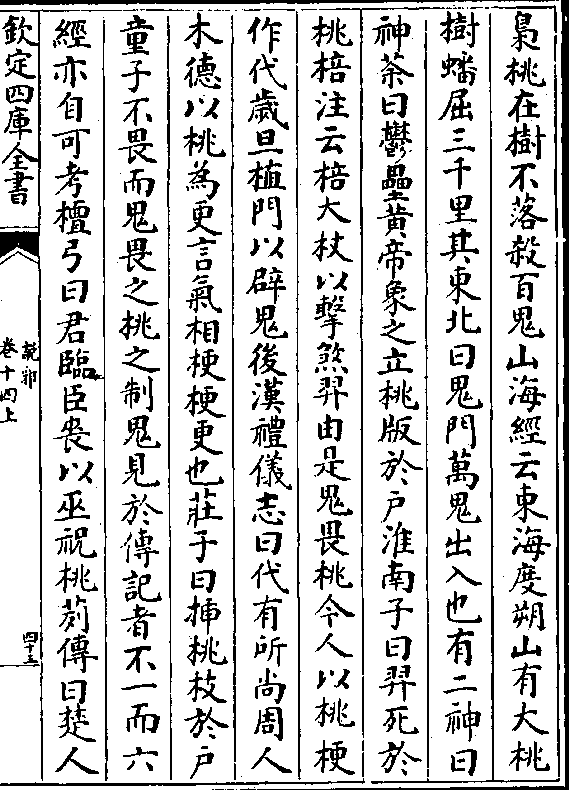 梟桃在樹不落殺百鬼山海經云東海度朔山有大桃
樹蟠屈三千里其東北曰鬼門萬鬼出入也有二神曰
神荼曰鬱壘黄帝象之立桃版於户淮南子曰羿死於
桃棓注云棓大杖以擊煞羿由是鬼畏桃今人以桃梗
作代歲旦植門以辟鬼後漢禮儀志曰代有所尚周人
木德以桃為更言氣相梗梗更也莊子曰揷桃枝於户
童子不畏而鬼畏之桃之制鬼見於傳記者不一而六
經亦自可考檀弓曰君臨臣喪以巫祝桃茢傳曰楚人
欽定四庫全書
說郛
卷十四上
四十三